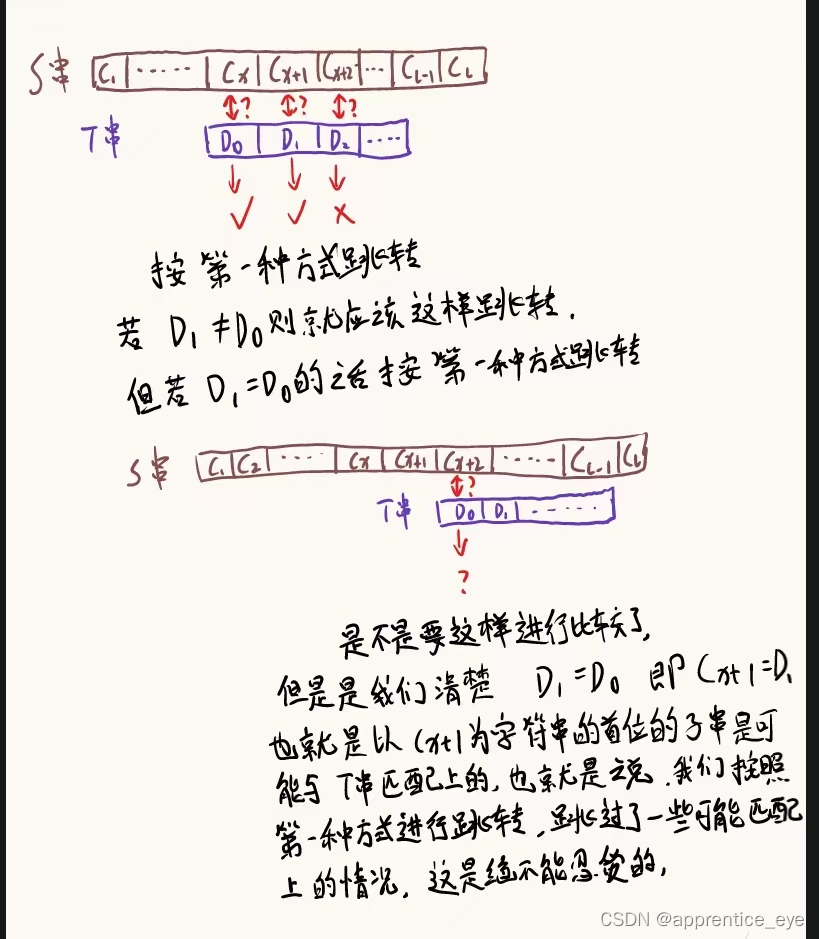 S串 C₁ ..... Cx Cx+1 Cx+2 ... CL-1 CL
? ? ?
T串 D₀ D₁ D₂ ....
✓ ✓ ×
按第一种方式跳转
若 D₁≠D₀则就应该这样跳转.
但若 D₁=D₀的话按第一种方式跳转
S串 C₁ C₂ .... Cx Cx+1 Cx+2 ..... CL-1 CL
?
T串 D₀ D₁ ......
?
是不是要这样进行比较了,
但是是我们清楚 D₁=D₀ 即 Cx+1=D₁
也就是以 Cx+1为字符串的首位的子串是可
能与 T串匹配上的,也就是说,我们按照
第一种方式进行跳转,跳过了一些可能匹配
上的情况,这是绝不能的,
CSDN @apprentice_eye